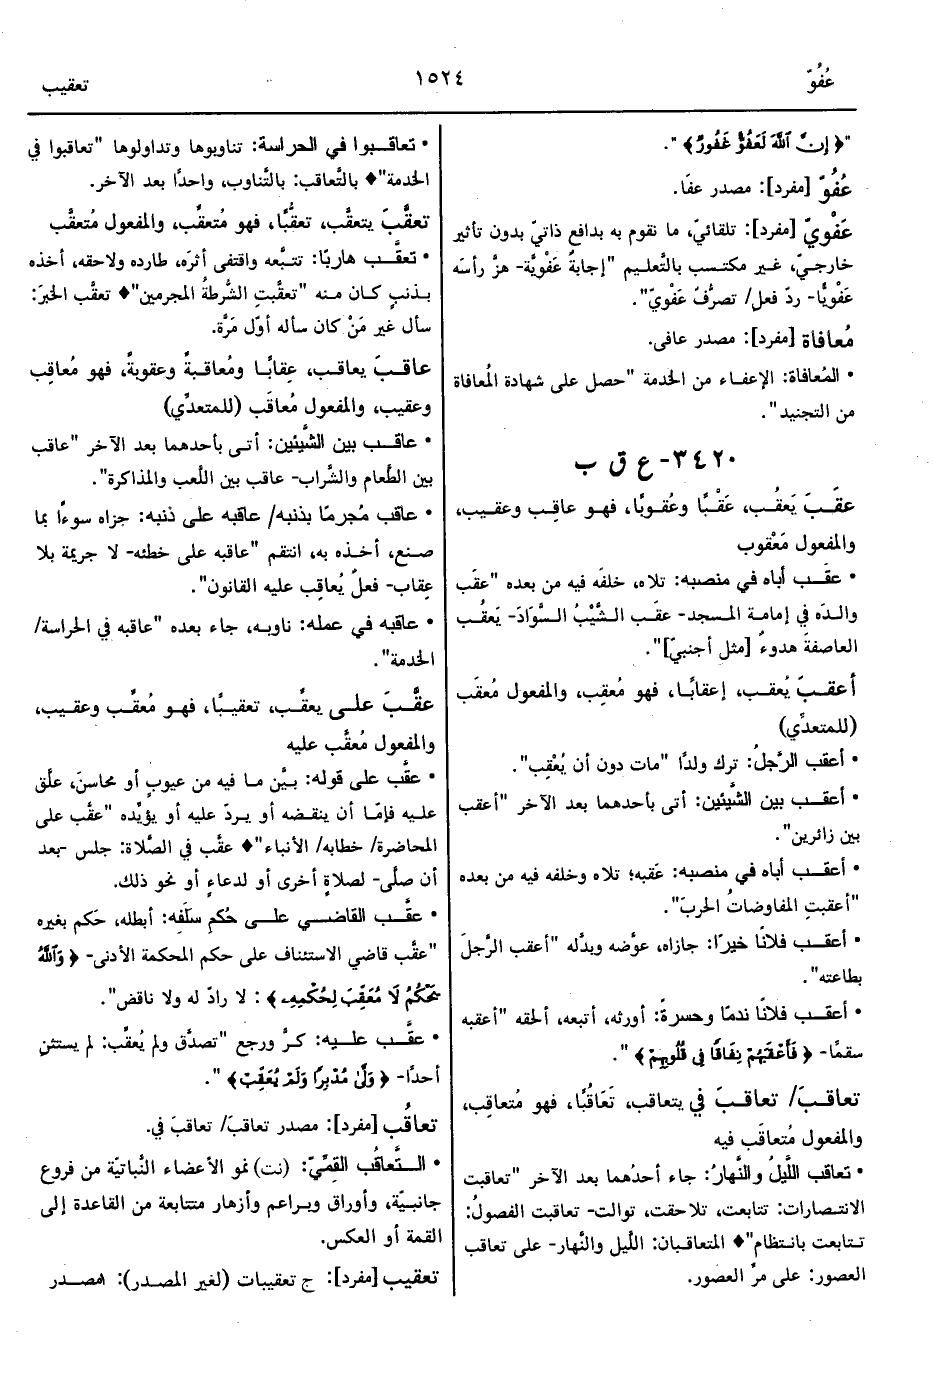 عُفُوّ
١٥٢٤
تعقيب
"﴿ إِنَّ اللَّهَ لَعَفُوٌّ غَفُورٌ ﴾".
عُفُوّ [مفرد]: مصدر عفَا.
عَفْوِيّ [مفرد]: تلقائيّ، ما نقوم به بدافع ذاتيّ بدون تأثير
خارجيّ، غير مكتسب بالتَّعليم "إجابةٌ عَفْوِيَّة- هزَّ رأسَه
عَفْوِيًّا- ردّ فعل/ تصرُّفٌ عَفْوِيّ".
مُعافاة [مفرد]: مصدر عافى.
• المُعافاة: الإعفاء من الخدمة "حصل على شهادة المُعافاة
من التجنيد".
٣٤٢٠- ع ق ب
عقَبَ يَعقُب، عَقْبًا وعُقوبًا، فهو عاقِب وعقيب،
والمفعول مَعْقوب
• عقَب أباه في منصبه: تلاه، خلفَه فيه من بعده "عقَب
والدَه في إمامة المسجد- عقَب الشَّيْبُ السَّوَادَ- يَعقُب
العاصفةَ هدوءٌ [مثل أجنبيّ]".
أعقبَ يُعقب، إعقابًا، فهو مُعقِب، والمفعول مُعقَب
(للمتعدِّي)
• أعقب الرَّجلُ: ترك ولدًا "مات دون أن يُعْقِب".
• أعقب بين الشَّيئين: أتى بأحدهما بعد الآخر "أعقب
بين زائرين".
• أعقب أباه في منصبه: عَقبه؛ تلاه وخلفه فيه من بعده
"أعقبتِ المفاوضاتُ الحربَ".
• أعقب فلانًا خيرًا: جازاه، عوَّضه وبدَّله "أعقب الرَّجلَ
بطاعته".
• أعقب فلانًا ندمًا وحسرةً: أورثه، أتبعه، ألحقه "أعقبه
سقمًا- ﴿ فَأَعْقَبَهُمْ نِفَاقًا فِي قُلُوبِهِمْ ﴾ ".
تعاقبَ/ تعاقبَ في يتعاقب، تَعَاقُبًا، فهو مُتعاقِب،
والمفعول مُتعاقَب فيه
• تعاقب اللَّيلُ والنَّهارُ: جاء أحدُهما بعد الآخر "تعاقبت
الانتصارات: تتابعت، تلاحقت، توالت- تعاقبت الفصولُ:
تتابعت بانتظام"♦ المتعاقبان: اللَّيل والنَّهار- على تعاقب
العصور: على مرِّ العصور.
• تعاقبوا في الحراسة: تناوبوها وتداولوها "تعاقبوا في
الخدمة"♦ بالتَّعاقب: بالتَّناوب، واحدًا بعد الآخر.
تعقَّبَ يتعقَّب، تعقُّبًا، فهو مُتعقِّب، والمفعول مُتعقَّب
• تعقَّب هاربًا: تتبَّعه واقتفى أثرَه، طارده ولاحقه، أخذه
بذنبٍ كان منه "تعقَّبتِ الشُّرطةُ المجرمين"♦ تعقَّب الخبرَ:
سأل غير مَنْ كان سأله أوّل مَرَّة.
عاقبَ يعاقب، عِقابًا ومُعاقبةً وعقوبةً، فهو مُعاقِب
وعقيب، والمفعول مُعاقَب (للمتعدِّي)
• عاقب بين الشَّيئين: أتى بأحدهما بعد الآخر "عاقب
بين الطَّعام والشَّراب- عاقب بين اللَّعب والمذاكرة".
• عاقب مُجرمًا بذنبه/ عاقبه على ذنبه: جزاه سوءًا بما
صنع، أخذه به، انتقم "عاقبه على خطئه- لا جريمة بلا
عِقاب- فعلٌ يُعاقِب عليه القانون".
• عاقبه في عمله: ناوبه، جاء بعده "عاقبه في الحراسة/
الخدمة".
عقَّبَ على يعقِّب، تعقيبًا، فهو مُعقِّب وعقيب،
والمفعول مُعقَّب عليه
• عقَّب على قوله: بيَّن ما فيه من عيوبٍ أو محاسنَ، علَّق
عليه فإمّا أن ينقضه أو يردّ عليه أو يؤيِّده "عقَّب على
المحاضرة/ خطابه/ الأنباء"♦ عقَّب في الصَّلاة: جلس -بعد
أن صلَّى- لصلاةٍ أخرى أو لدعاءٍ أو نحو ذلك.
• عقَّب القاضي على حُكم سلَفِه: أبطله، حَكم بغيره
"عقَّب قاضي الاستئناف على حكم المحكمة الأدنى- ﴿ وَاللَّهُ
يَحْكُمُ لَا مُعَقِّبَ لِحُكْمِهِ ﴾ : لا رادّ له ولا ناقض".
• عقَّب عليه: كرَّ ورجع "تصدَّق ولم يُعقِّب: لم يستثنِ
أحدًا- ﴿ وَلَّى مُدْبِرًا وَلَمْ يُعَقِّبْ ﴾ ".
تعاقُب [مفرد]: مصدر تعاقبَ/ تعاقبَ في.
• التَّعاقُب القِمِّيّ: (نت) نمو الأعضاء النَّباتيّة من فروع
جانبيّة، وأوراق وبراعم وأزهار متتابعة من القاعدة إلى
القمة أو العكس.
تعقيب [مفرد]: ج تعقيبات (لغير المصدر): مصدر